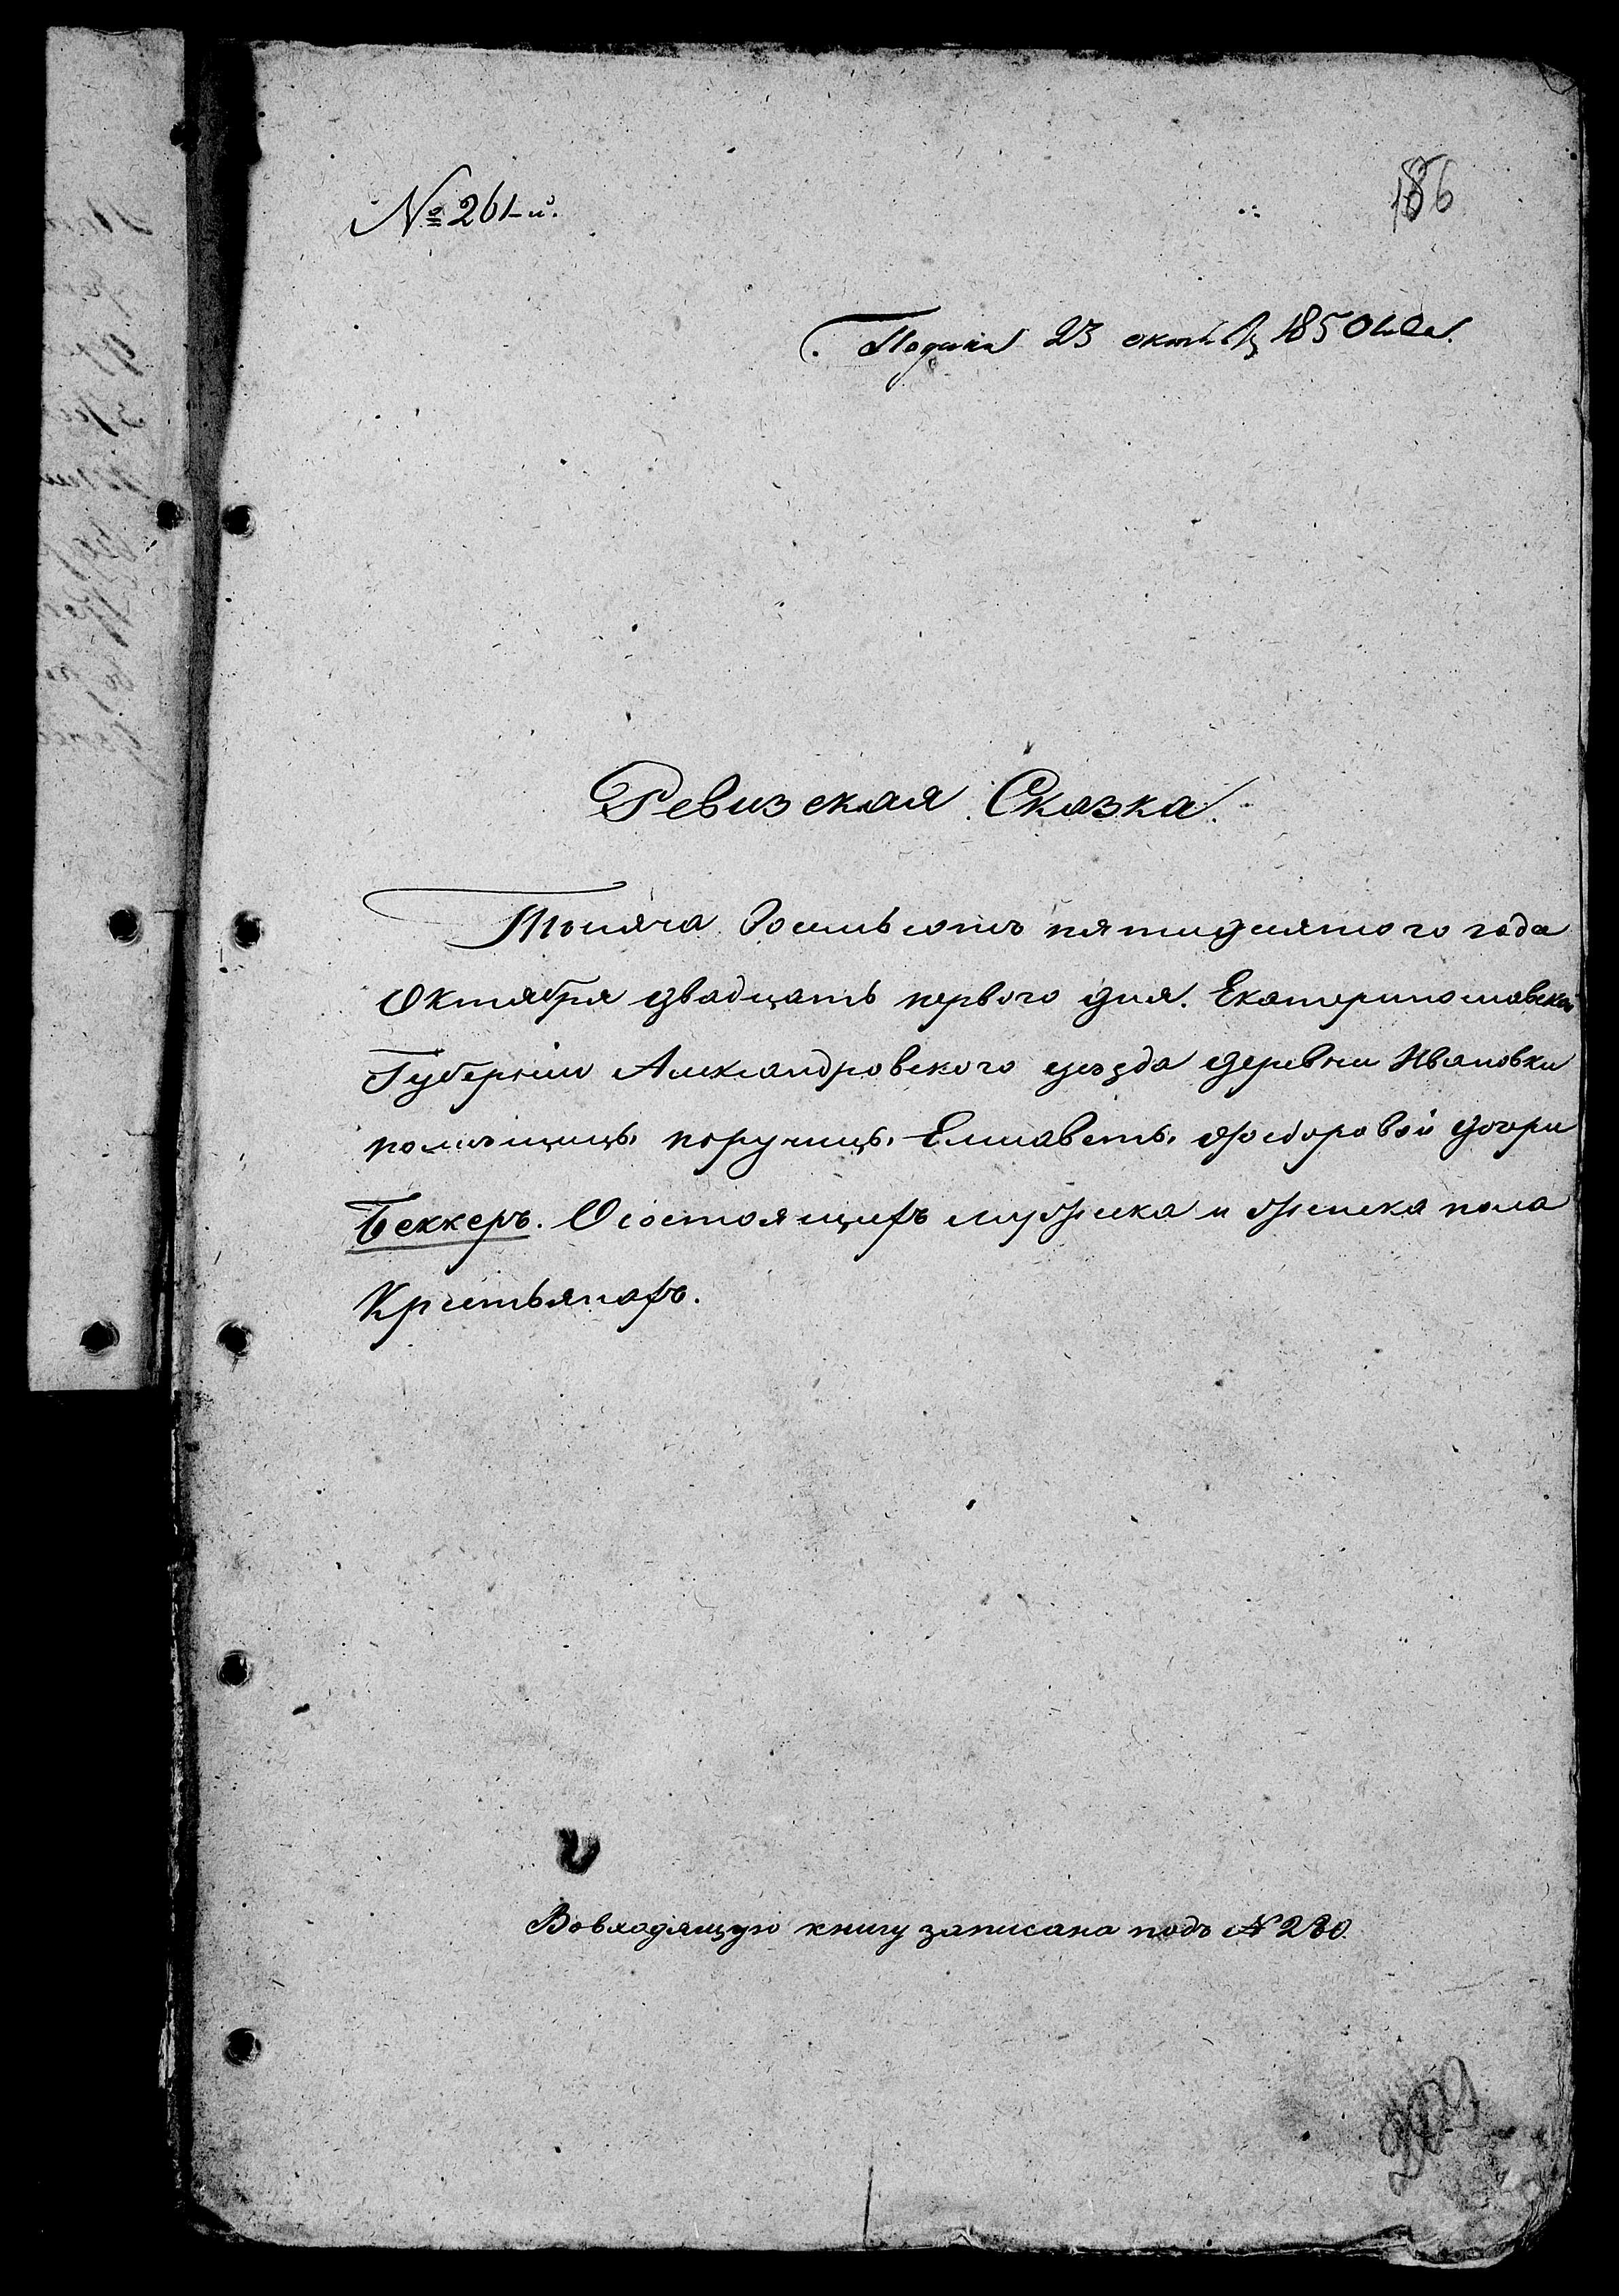 № 261-й.
186
Подана 23 октяб 1850 года.
Ревизская Сказка.
Тысяча восемьсотъ пятидесятого года
Октября двадцать первого дня. Екатеринославской
Губернии Александровского уезда деревни Ивановки
помѣщицы поручицы Елисаветы Федоровой дочери
Беккеръ. О состоящихъ мужеска и женска пола
Крестьянахъ.
Во входящую книгу записана подъ № 280.